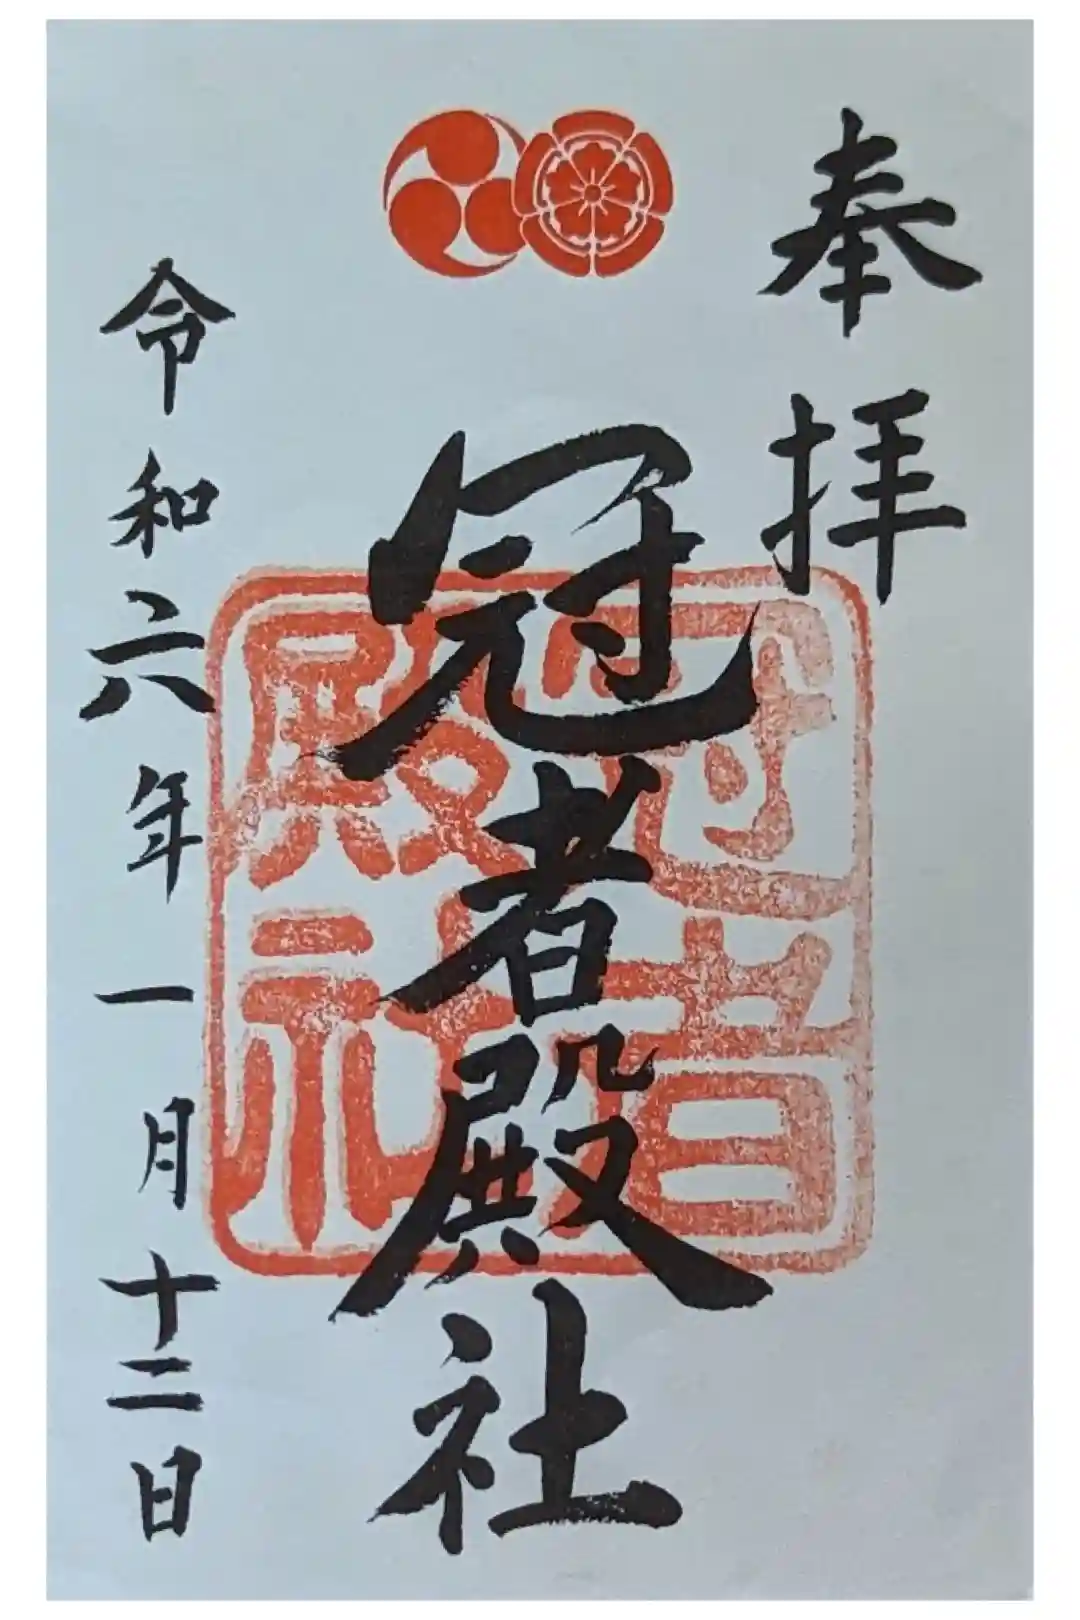 奉拝
冠者殿社
冠者
殿社
令和六年一月十二日